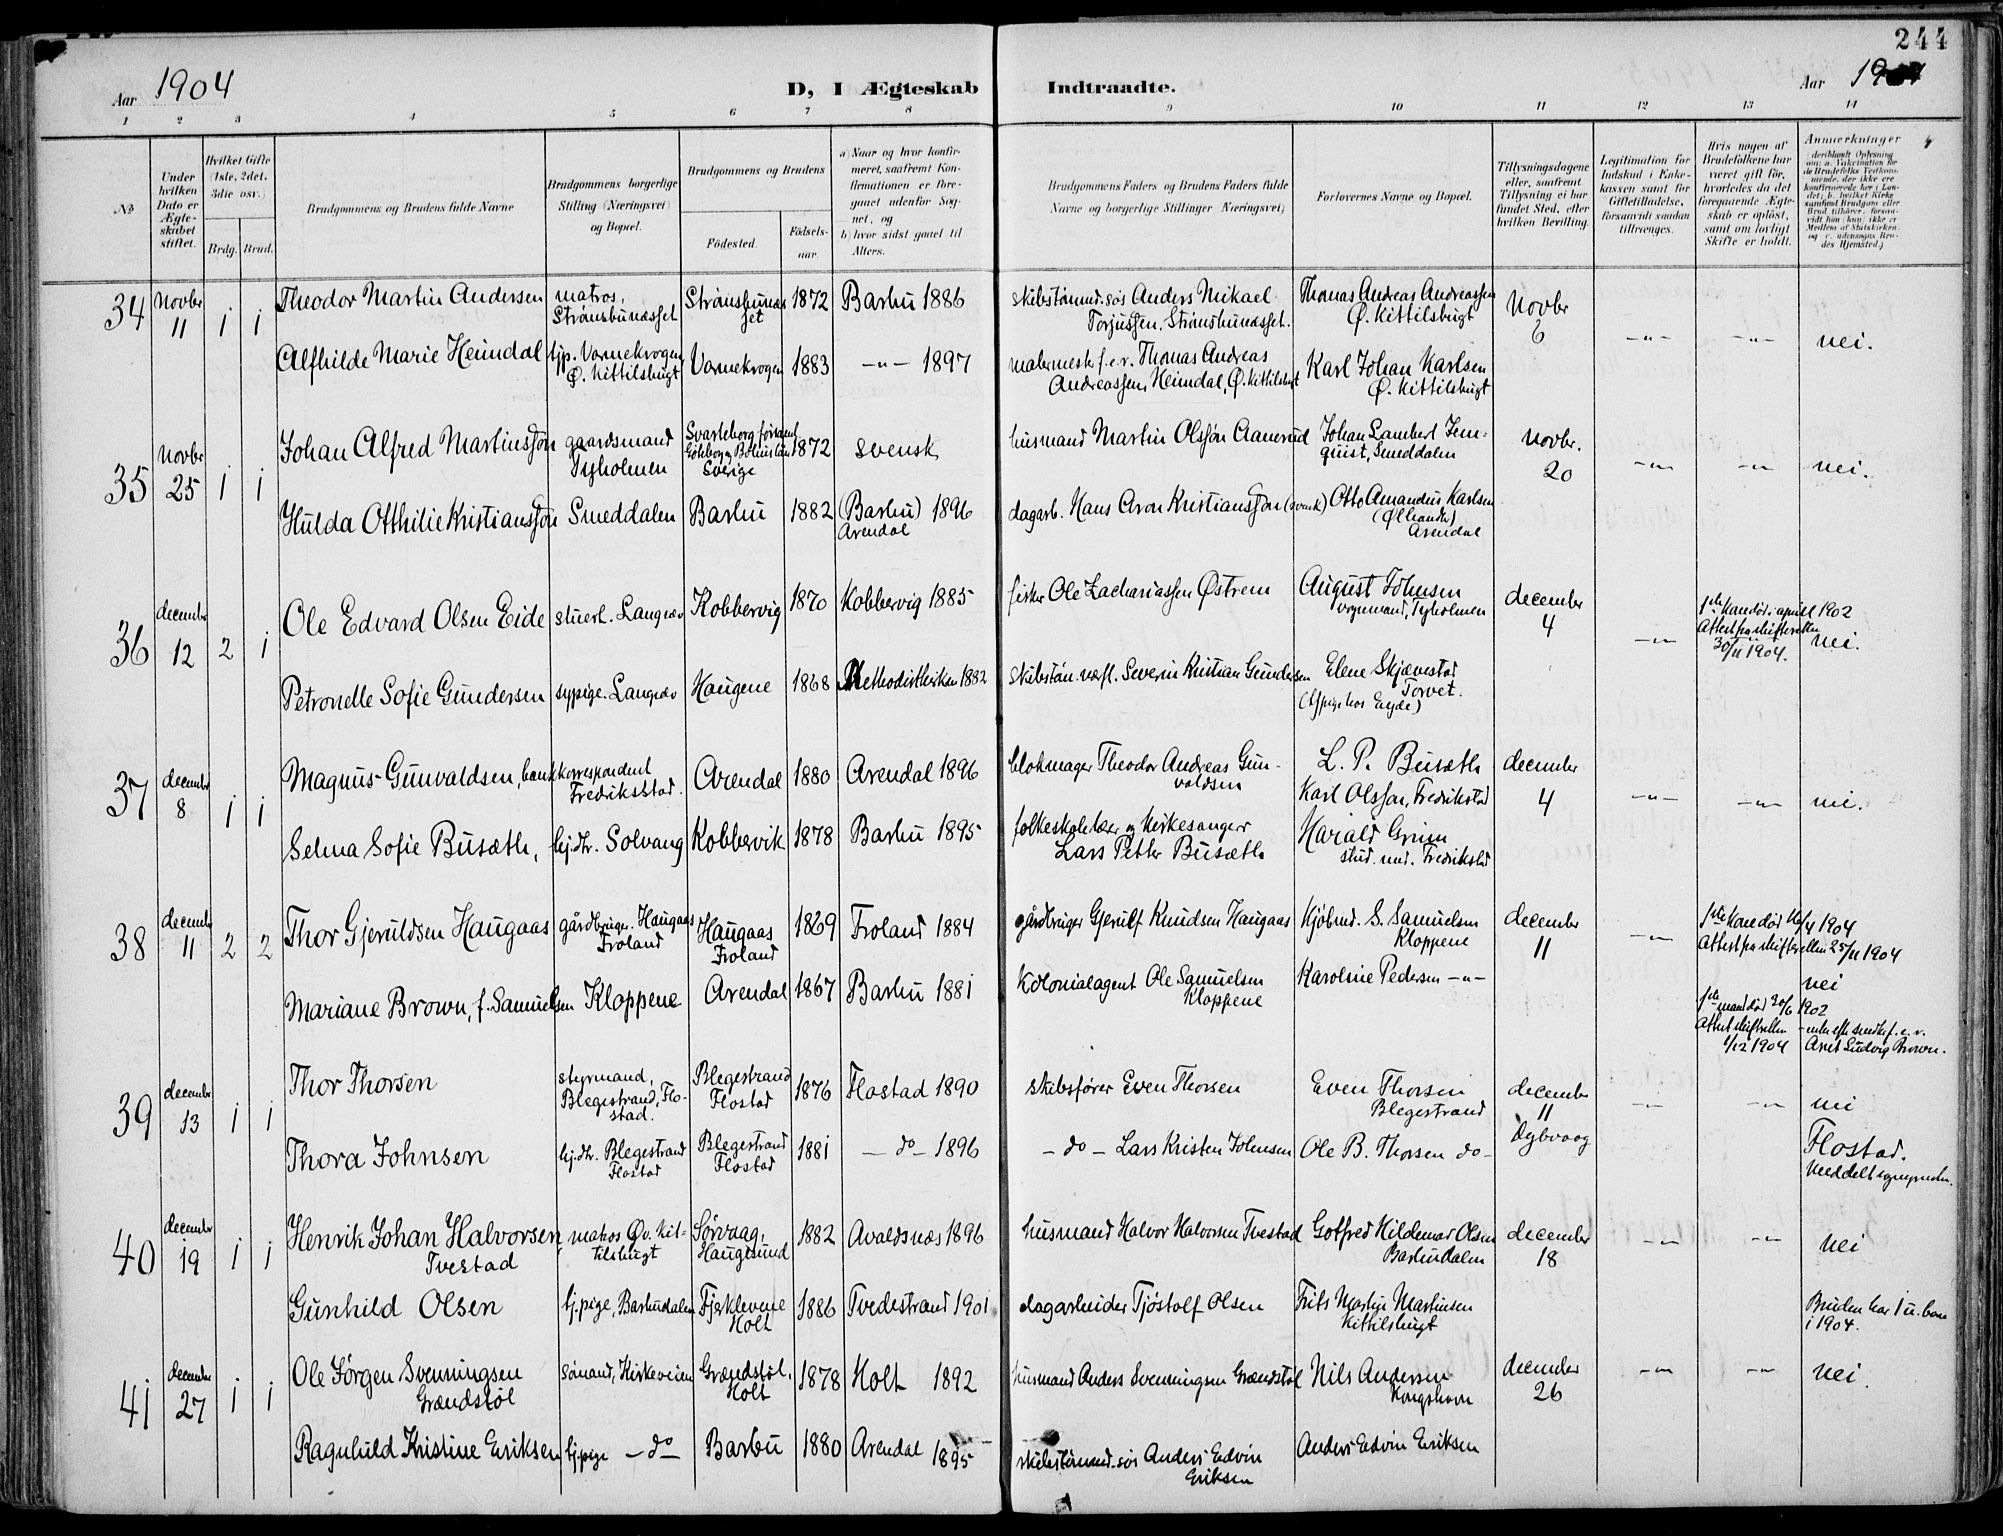 244
Aar 1904
D, I Ægteskab Indtraadte.
Aar 19
1 2 3 4 5 6 7 8 9 10 11 12 13 14
No
Under hvilken Dato er Ægteskabet stiftet.
Hvilket Gifte (1ste, 2det, 3die osv.)
Brdg. Brud.
Brudgommens og Brudens fulde Navne
Brudgommens borgerlige Stilling (Næringsvei) og Bopæl.
Brudgommens og Brudens
Födested. Födselsaar.
a) Naar og hvor konfirmeret, saafremt Konfirmationen er foregaaet udenfor Sognet, og
b) hvor sidst gaaet til Alters.
Brudgommens Faders og Brudens Faders fulde Navne og borgerlige Stillinger (Næringsvei)
Forlovernes Navne og Bopæl.
Tillysningsdagene eller, saafremt Tillysning ei har fundet Sted, efter hvilken Bevilling.
Legitimation for Indskud i Enkekassen samt for Giftetilladelse, forsaavidt saadan tiltrænges.
Hvis nogen af Brudefolkene har været gift för, hvorledes da det foregaaende Ægteskab er oplöst, samt om lovligt Skifte er holdt.
Anmærkninger
34 Novbr 11 1 1 Theodor Martin Andersen matros, Strømsbunæsset Strømsbunæsset 1872 Barbu 1886 skibstømmd. søs Anders Mikael Torjussen, Strømsbunæsset. Thomas Andreas Andreassen Ø. Kittilsbugt Novbr 6 -"- -"- nei.
Alfhilde Marie Heimdal tjp. Varnekrogen Ø. Kittilsbugt Varnekrogen 1883 -"- 1897 malermester f.e.v. Thomas Andreas Andreassen Heimdal, Ø. Kittilsbugt Karl Johan Karlsen Ø. Kittilsbugt
35 Novbr 25 1 1 Johan Alfred Martinsson gaardsmand Tyholmen Svarteborg Göteborg Bohus län Sverige 1872 svensk husmand Martin Olsson Aanerud Johan Lambert Jernquist, Smeddalen Novbr. 20 -"- -"- nei.
Hulda Otthilie Kristiansson Smeddalen Barbu 1882 (Barbu) 1896 Arendal dagarb. Hans Aron Kristiansson (svensk) Otto Amandus Karlsen Arendal
36 december 12 2 1 Ole Edvard Olsen Eide stuert. Langsæv Kobbervig 1870 Kobbervig 1885 fisker Ole Zachariassen Østrem August Johnsen vognmand, Tyholmen december 4 -"- 1ste kone død i april 1902 Attest fra skifteretten 30/11 1904. nei.
Petronelle Sofie Gundersen sypige. Langsæv Haugene 1868 Methodistkirken 1882 skibstøm. Severin Kristian Gundersen Elene Skjævestad Torvet.
37 december 8 1 1 Magnus Gunvaldsen, bankkorrespondent Fredriksstad. Arendal 1880 Arendal 1896 blokmager Theodor Andreas Gunvaldsen L. P. Busæth Karl Olsson, Fredrikstad december 4 -"- -"- nei.
Selma Sofie Busæth, hj.dtr. Solvang Kobbervik 1878 Barbu 1895 folkeskolelærer og kirkesanger Lars Petter Busæth Harald Grim stud. med. Fredrikstad
38 december 11 2 2 Thor Gjeruldsen Haugaas gårdbruger. Haugaas Froland Haugaas Froland 1869 Froland 1884 gårdbruger Gjerulf Knudsen Haugaas Kjøbmd. S. Samuelsen Kloppene december 11 -"- 1ste kone død 16/4 1904 Attest fra skifteretten 25/11 1904
Mariane Brown, f. Samuelsen Kloppene Arendal 1867 Barbu 1881 kolonialagent Ole Samuelsen Kloppene Karoline Pedersen -"- nei 1ste mand død 20/6 1902 Attest skifteretten 1/12 1904 - enke efter f.e.v. Axel Ludvig Brown.
39 december 13 1 1 Thor Thorsen styrmand, Blegestrand, Flostad. Blegestrand Flostad 1876 Flostad 1890 skibsfører Even Thorsen Even Thorsen Blegestrand december 11 Dybvaag -"- -"- nei
Thora Johnsen hj.dtr. Blegestrand Flostad Blegestrand Flostad 1881 - do - 1896 - do - Lars Kristen Johnsen Ole B. Thorsen do - Flostad. Meddelt sognepresten.
40 december 19 1 1 Henrik Johan Halvorsen Tvestad matros Øv. Kittilsbugt Sørvaag, Haugesund 1882 Avaldsnæs 1896 husmand Halvor Halvorsen Tvestad Gotfred Hildemar Olsen Barbudalen december 18 -"- -"- nei
Gunhild Olsen tj.pige, Barbudalen Fjæreklevene Holt 1886 Tvedestrand 1901 dagarbeider Tjøstolf Olsen Frits Martin Martinsen Kittilsbugt Bruden har 1 u. barn i 1904.
41 december 27 1 1 Ole Jørgen Svenningsen Grændstøl sømand, Kirkeveien Grændstøl, Holt 1878 Holt 1892 husmand Anders Svenningsen Grændstøl Nils Andersen Kongshavn december 26 -"- -"- nei.
Ragnhild Kristine Eriksen tj.pige - do - Barbu 1880 Arendal 1895 skibstømmd. søs Anders Edvin Eriksen Anders Edvin Eriksen